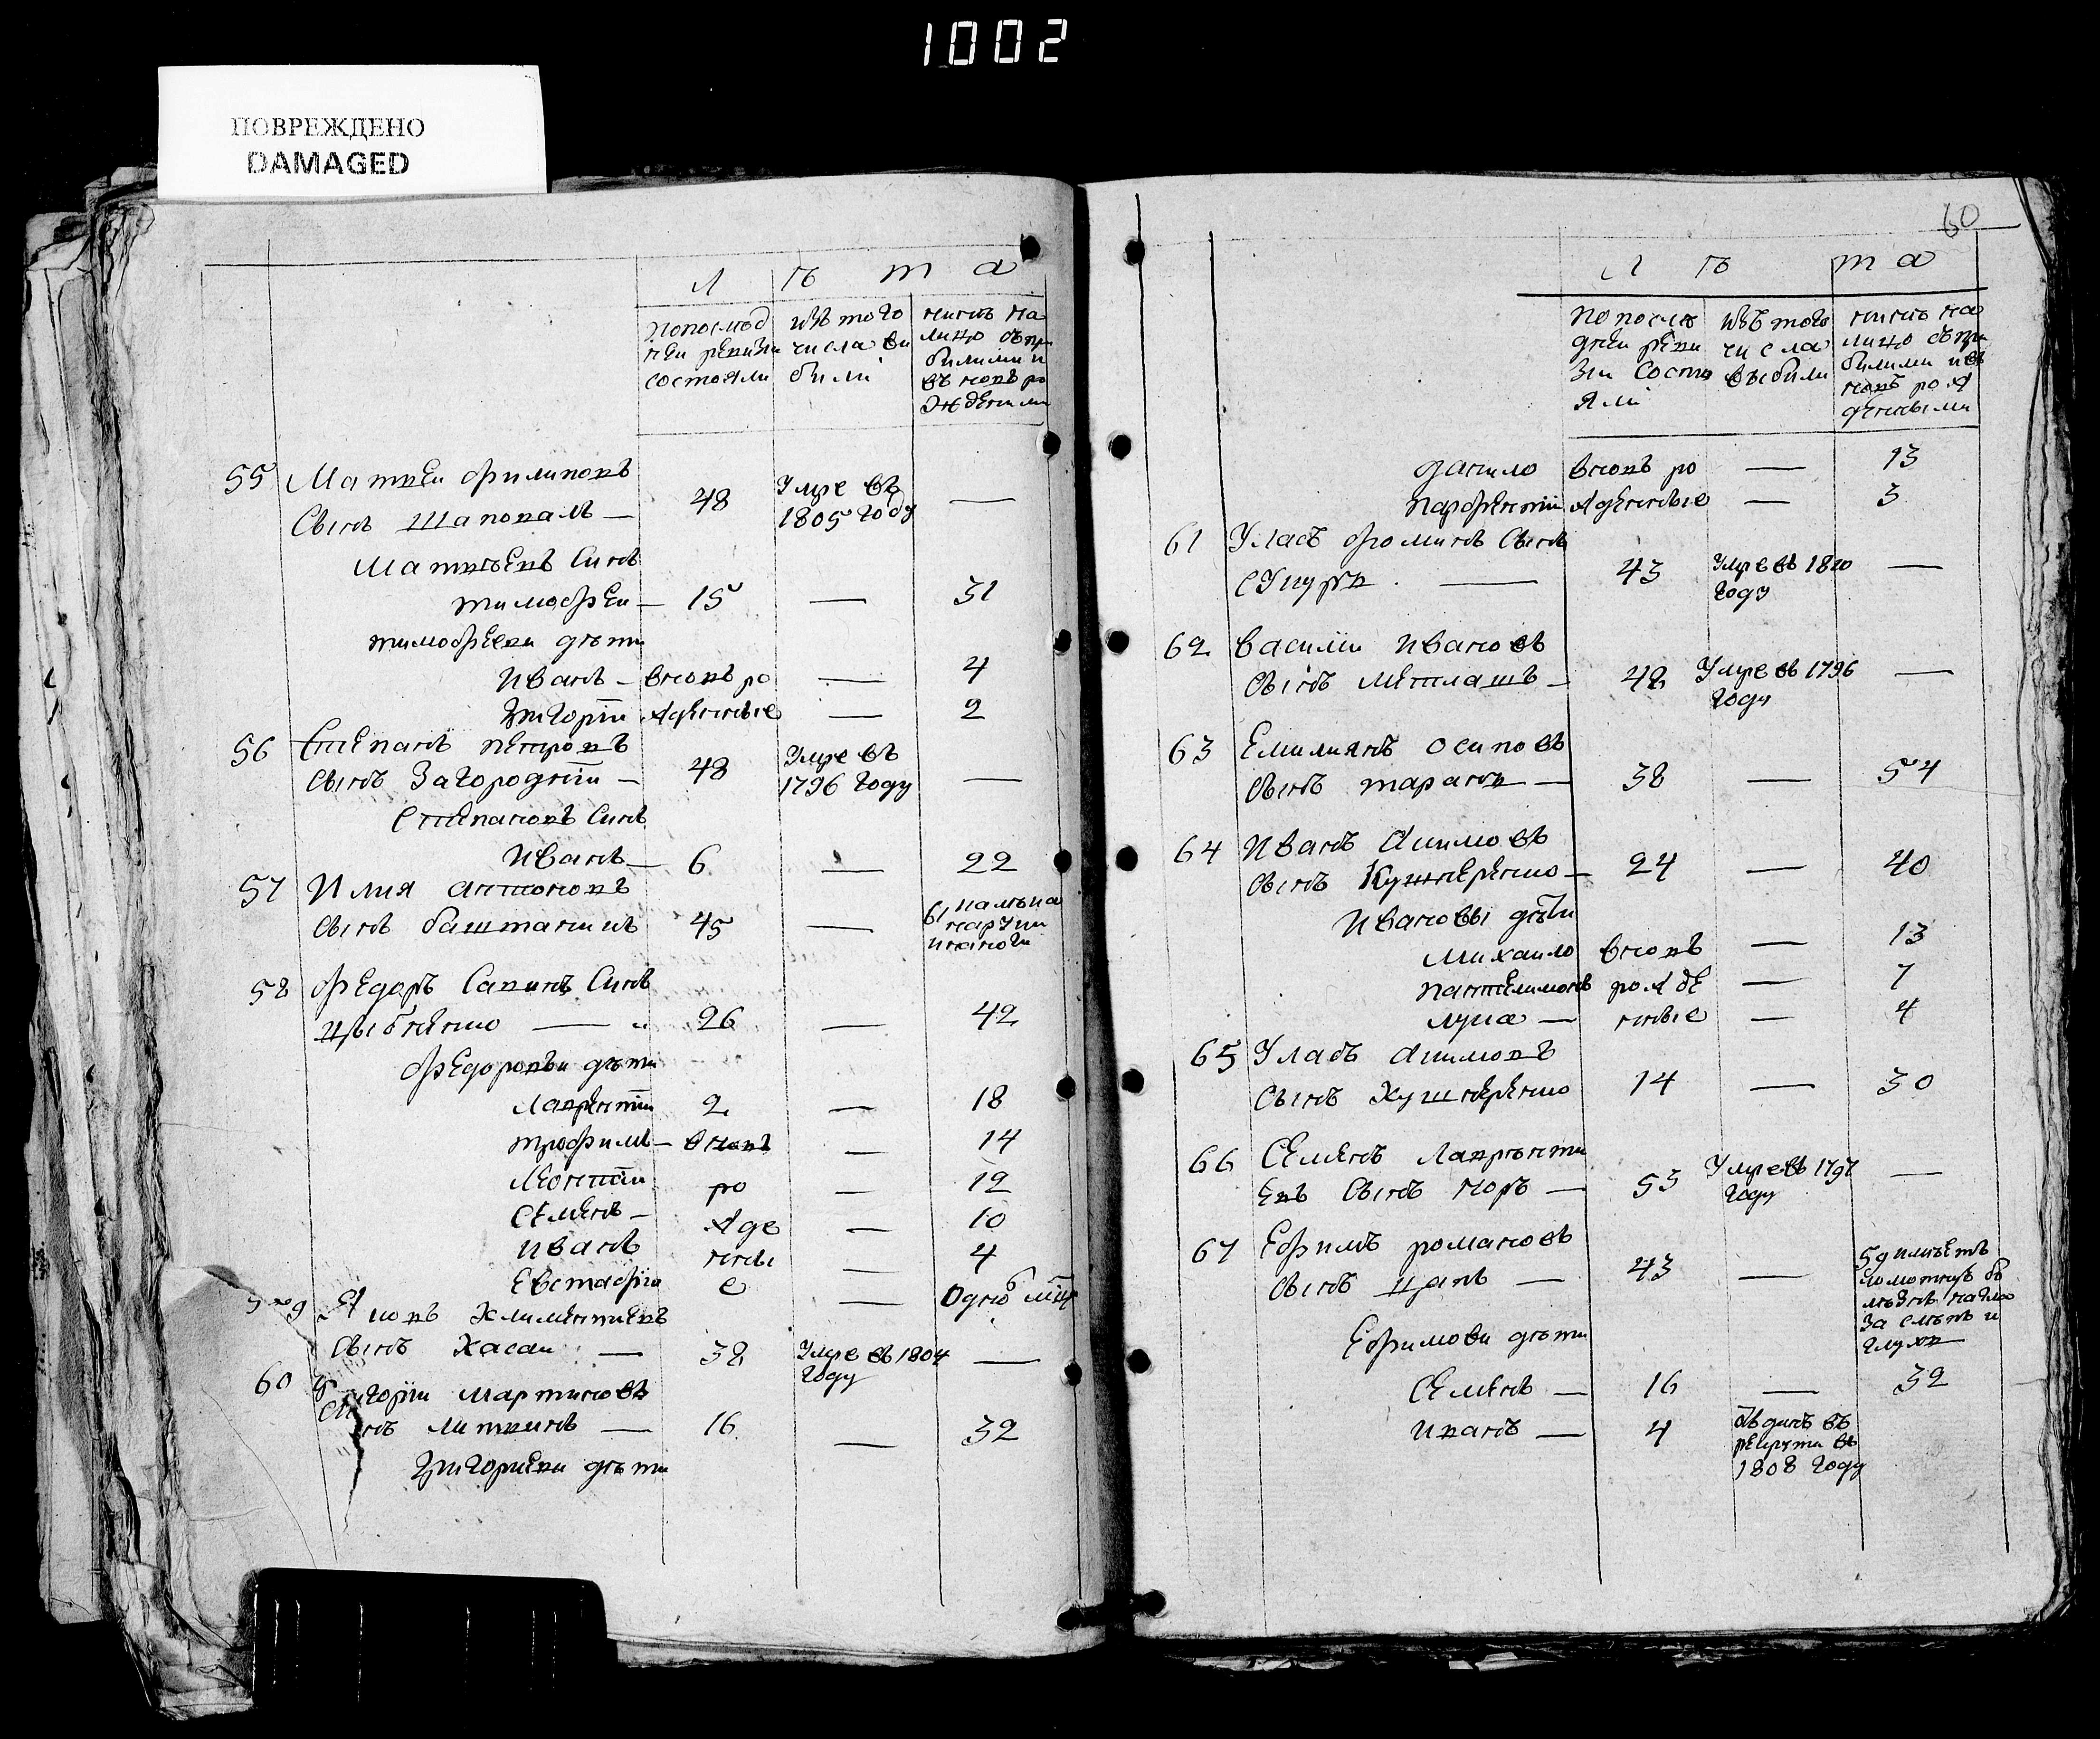 1002
ПОВРЕЖДЕНО
DAMAGED
Л ѣ т а
По послѣд ней ревизіи состояли
изъ того числа вибили
нинѣ на лицо съ прибилими и въ новѣ рожденими
55 Матвеи филиповъ
Сынъ Шаповалъ — 48 Умре въ 1805 году —
Матвѣевъ Синъ
тимофеи — 15 — 31
тимофѣеви дѣти
Иванъ — вновѣ ро — 4
Григорій жденные — 2
56 Степанъ петровъ
Сынъ Загородній — 48 Умре въ 1796 году —
Степановъ Синъ
Иванъ — 6 — 22
57 Илия антоновъ
Сынъ баштаникъ 45 — 61
58 федоръ Савинъ Синъ
Цыбненко — 26 — 42
федоровы дѣти
Лаврентій 2 — 18
трофимъ — вновѣ — 14
Леонтій ро — 12
Семенъ — жде — 10
Иванъ нны — 4
Евстафій е — Одного мѣц
59 Яковъ Климентиевъ
Сынъ Касай — 38 Умре въ 1804 году —
60 Григорій мартиновъ
Синъ литвинъ — 16 — 32
Григориеви дѣти
60
Л ѣ т а
По послѣдней ревизіи состояли
изъ того числа выбили
нинѣ на лицо съ прибилими и въ новѣ рожденными
данило вновѣ ро — 13
парфентій жденные — 3
61 Уласъ фоминъ Сынъ
— 43 Умре въ 1810 году —
62 Василій Ивановъ
Сынъ Метлашъ — 42 Умре въ 1796 году —
63 Емилиянъ осиповъ
Сынъ таранъ — 38 — 54
64 Иванъ Акимовъ
Сынъ Кушнеренко — 24 — 40
Ивановы дѣти
Михаило вновѣ — 13
пантелимонъ рожде — 7
лука — нные — 4
65 Уласъ Акимовъ
Сынъ Кушнеренко 14 — 30
66 Семенъ Лаврѣнти
евъ Сынъ норъ — 53 Умре въ 1797 году —
67 Ефимъ романовъ
Сынъ цапъ — 43 — 59 имѣетъ
глухъ
Ефимови дѣти
Семенъ — 16 — 32
Иванъ — 4 Отъданъ въ рекрути въ 1808 году